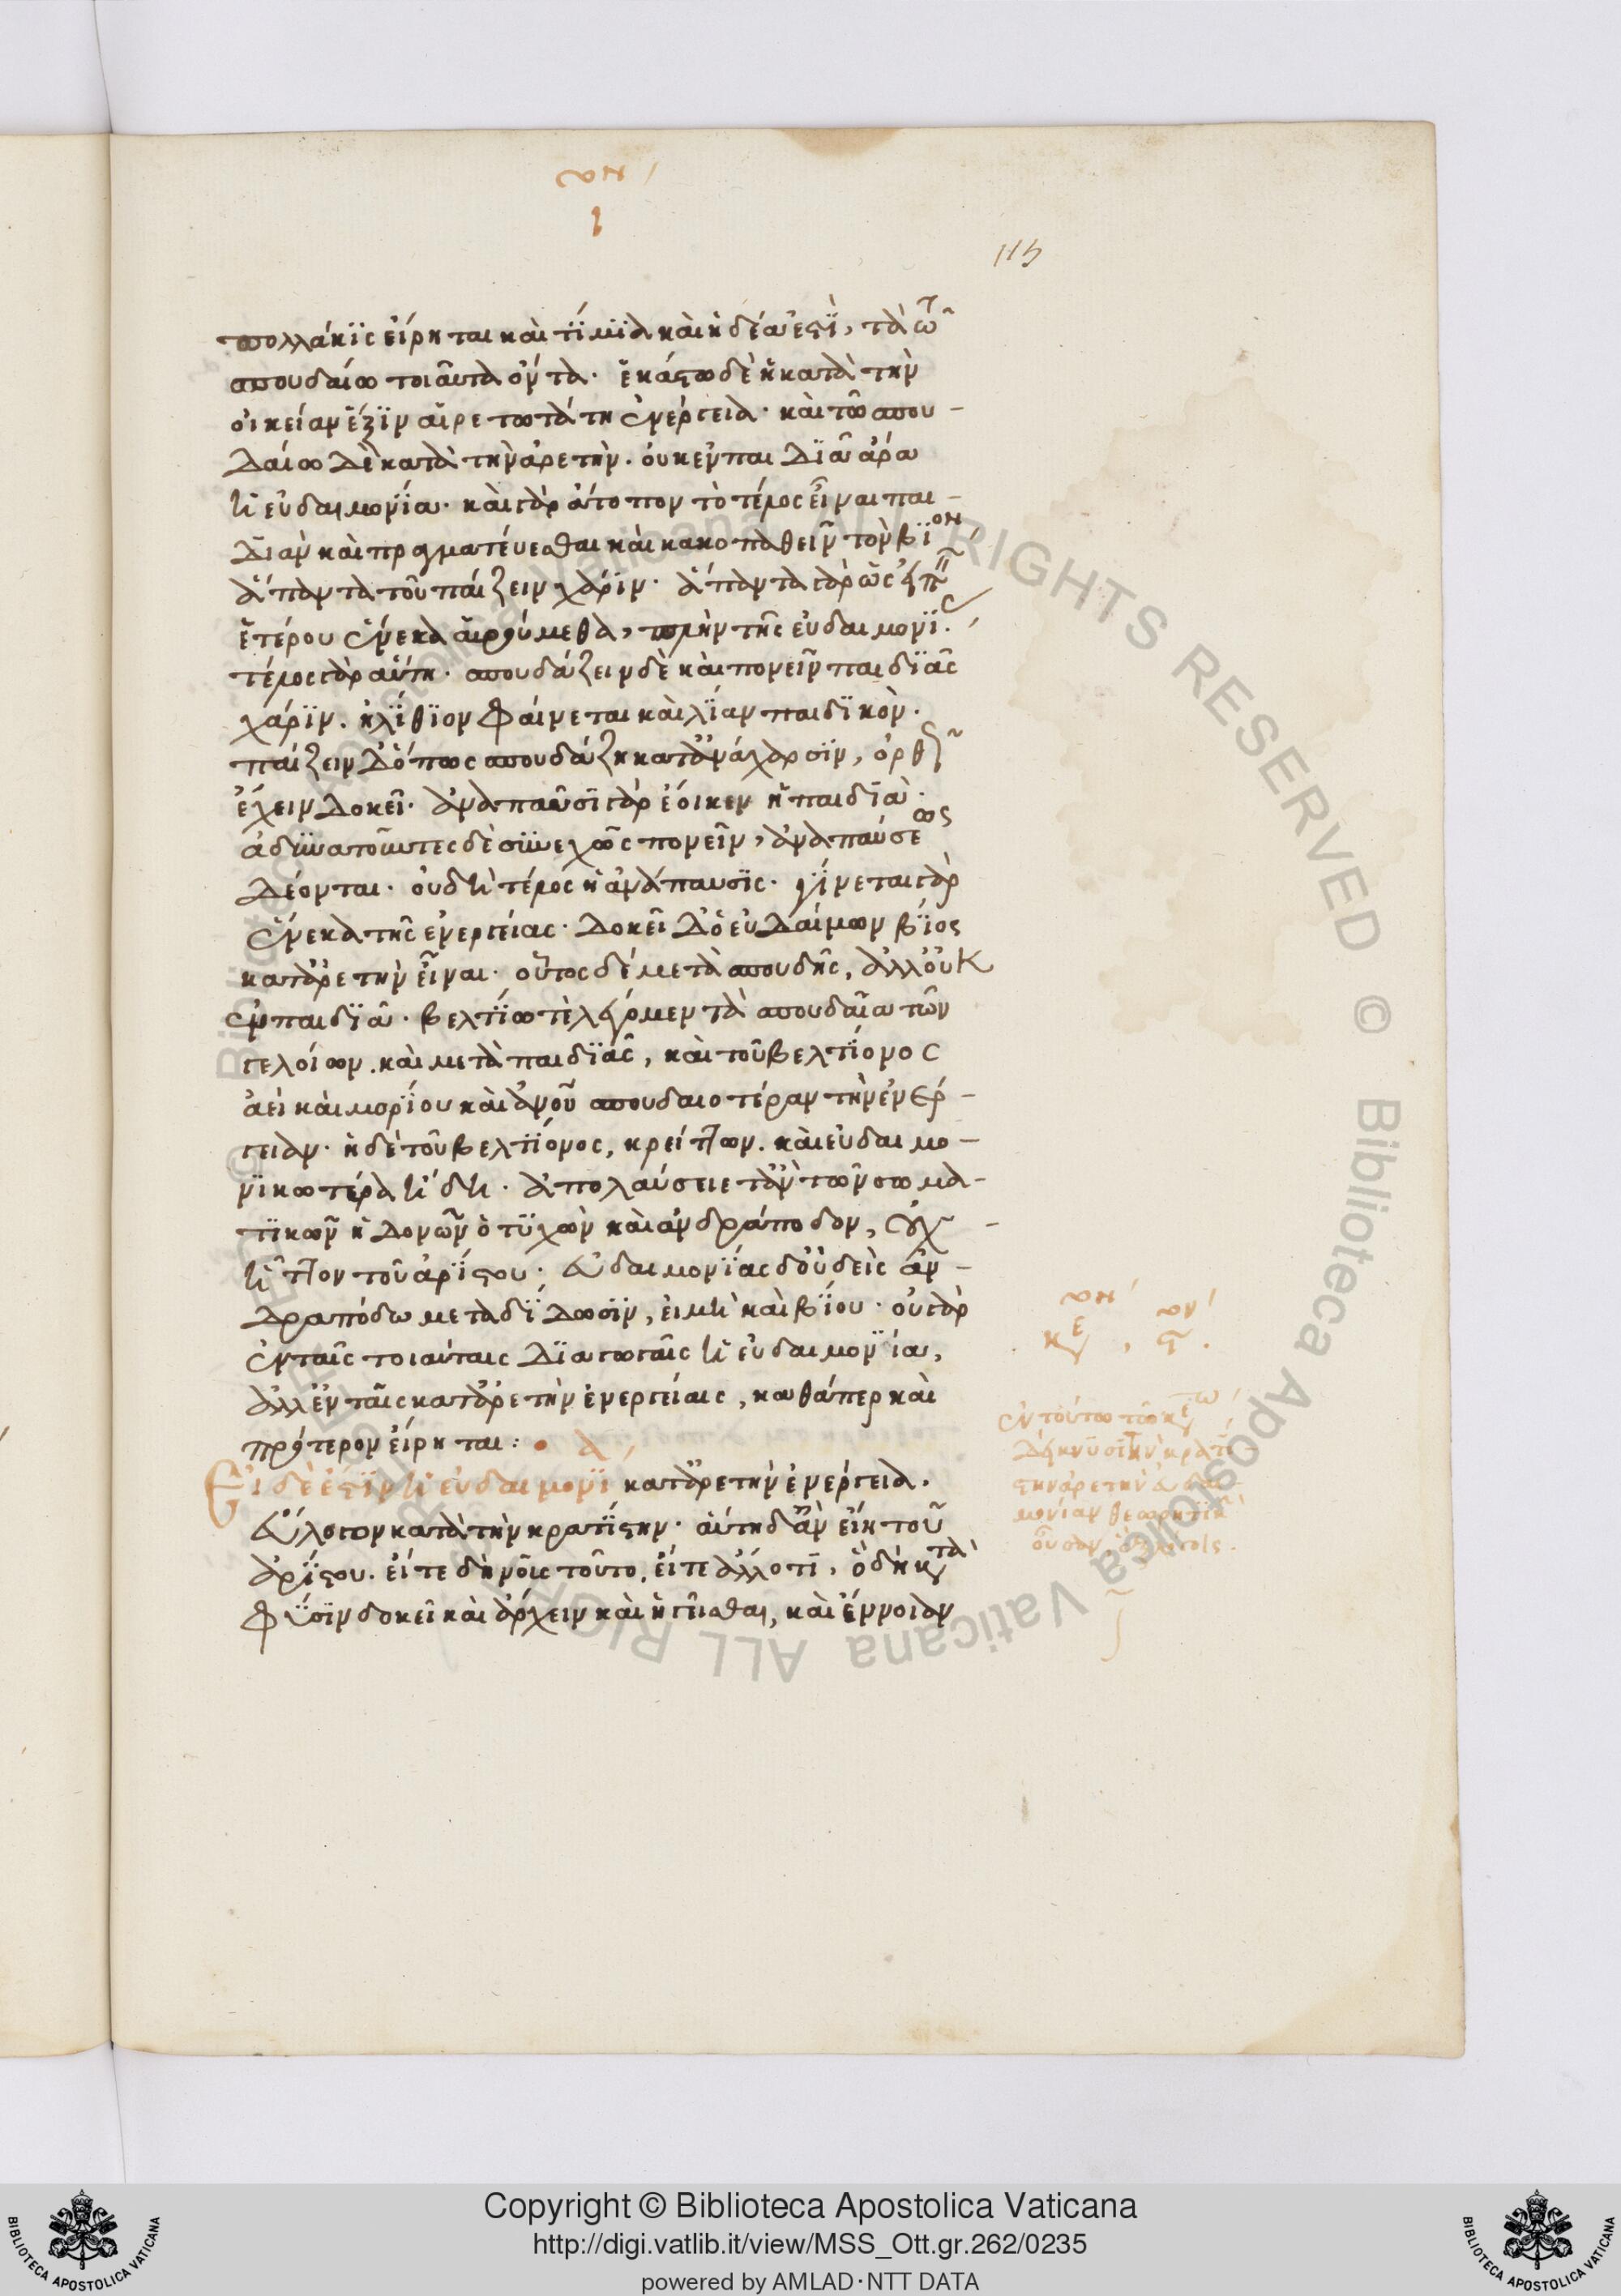 ον
ι
115
πολλάκϊς εἴρηται καὶ τίμϊα καὶ ἡδέα ἐστϊ, τὰ τῶ
σπουδαίω τοιαῦτα ὄντα. ἑκάστω δὲ ἡ κατὰ τὴν
οἰκείαν ἕξϊν αἱρετωτάτη ἐνέργεια. καὶ τῶ σπου-
δαίω δὲ κατὰ τὴν ἀρετήν. οὐκ ἐν παιδϊᾶ ἄρα
ἡ εὐδαιμονϊα. καὶ γὰρ ἄτοπον τὸ τέλος εἶναι παι-
διὰν καὶ πραγματεύεσθαι καὶ κακοπαθεῖν τὸν βΐον
ἅπαντα τοῦ παίζειν χάρϊν. ἅπαντα γὰρ ὡς εἰπεῖν
ἑτέρου ἕνεκα αἱρούμεθα, πλὴν τῆς εὐδαιμονϊας.
τέλος γὰρ αὕτη. σπουδάζειν δὲ καὶ πονεῖν παιδϊᾶς
χάρϊν. ἠλΐθϊον φαίνεται καὶ λΐαν παιδϊκὸν.
παίζειν δ' ὅπως σπουδάζη κατ' ἀνάχαρσϊν, ὀρθῶς
ἔχειν δοκεῖ. ἀναπαύσει γὰρ ἔοικεν ἡ παιδϊὰ.
ἀδυνατοῦντες δὲ συνεχῶς πονεῖν, ἀναπαύσεως
δέονται. οὐ δὴ τέλος ἡ ἀνάπαυσϊς. γΐνεται γὰρ
ἕνεκα τῆς ἐνεργείας. δοκεῖ δ' ὁ εὐδαίμων βΐος
κατ' ἀρετὴν εἶναι. οὗτος δὲ μετὰ σπουδῆς, ἀλλ' οὐκ
ἐν παιδϊᾶ. βελτΐω τὲ λέγομεν τὰ σπουδαῖα τῶν
γελοίων. καὶ μετὰ παιδϊᾶς, καὶ τοῦ βελτΐονος
ἀεὶ καὶ μορΐου καὶ ἀνοῦ σπουδαιοτέραν τὴν ἐνέρ-
γειαν. ἡ δὲ τοῦ βελτΐονος, κρείττων. καὶ εὐδαιμο-
νϊκωτέρα ἤδη. ἀπολαύσειε τ' ἂν τῶν σωμα-
τϊκῶν ἡδονῶν ὁ τυχὼν καὶ ἀνδράποδον, οὐχ -
ἧττον τοῦ ἀρΐστου. εὐδαιμονΐας δ' οὐδεὶς ἀν-
δραπόδω μεταδΐδωσϊν, εἰ μὴ καὶ βΐου. οὐ γὰρ
ἐν ταῖς τοιαύταις διαγωγαῖς ἡ εὐδαιμονΐα,
ἀλλ' ἐν ταῖς κατ' ἀρετὴν ἐνεργείαις, καθάπερ καὶ
πρότερον εἴρηται: • λ,
Εἰ δὲ ἐστϊν ἡ εὐδαιμονϊ κατ' ἀρετὴν ἐνέργεια.
εὔλογον κατὰ τὴν κρατΐστην. αὕτη δ' ἂν εἴη τοῦ
ἀρΐστου. εἴτε δὴ νοῦς τοῦτο, εἴτε ἄλλο τϊ, ὃ δὴ κατὰ
φύσϊν δοκεῖ καὶ ἄρχειν καὶ ἡγεῖσθαι, καὶ ἔννοιαν
ον ον
κε, ς.
ἐν τούτω τῶ κεω
δείκνυσϊ τὴν κρατΐ-
στην ἀρετὴν εὐδαι-
μονίαν θεωρητϊκὴ
οὖσαν
Copyright © Biblioteca Apostolica Vaticana
http://digi.vatlib.it/view/MSS_Ott.gr.262/0235
powered by AMLAD·NTT DATA
BIBLIOTECA APOSTOLICA VATICANA
BIBLIOTECA APOSTOLICA VATICANA
© Biblioteca Apostolica Vaticana ALL RIGHTS RESERVED
© Biblioteca Apostolica Vaticana ALL RIGHTS RESERVED